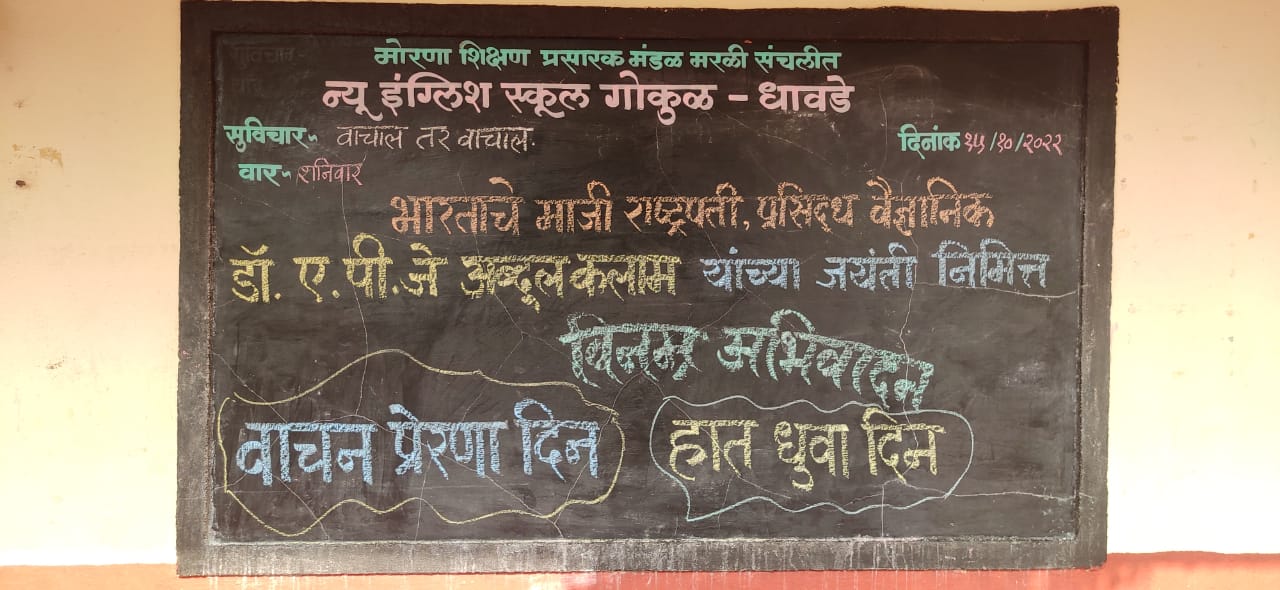 मोरणा शिक्षण प्रसारक मंडळ मरळी संचलीत
न्यू इंग्लिश स्कूल गोकुळ - धावडे
सुविचार~ वाचाल तर वाचाल.
दिनांक १५/१०/२०२२
वार~ शनिवार
भारताचे माजी राष्ट्रपती, प्रसिद्ध वैज्ञानिक
डॉ. ए.पी.जे अब्दूल कलाम यांच्या जयंती निमित्त
विनम्र अभिवादन
वाचन प्रेरणा दिन
हात धुवा दिन